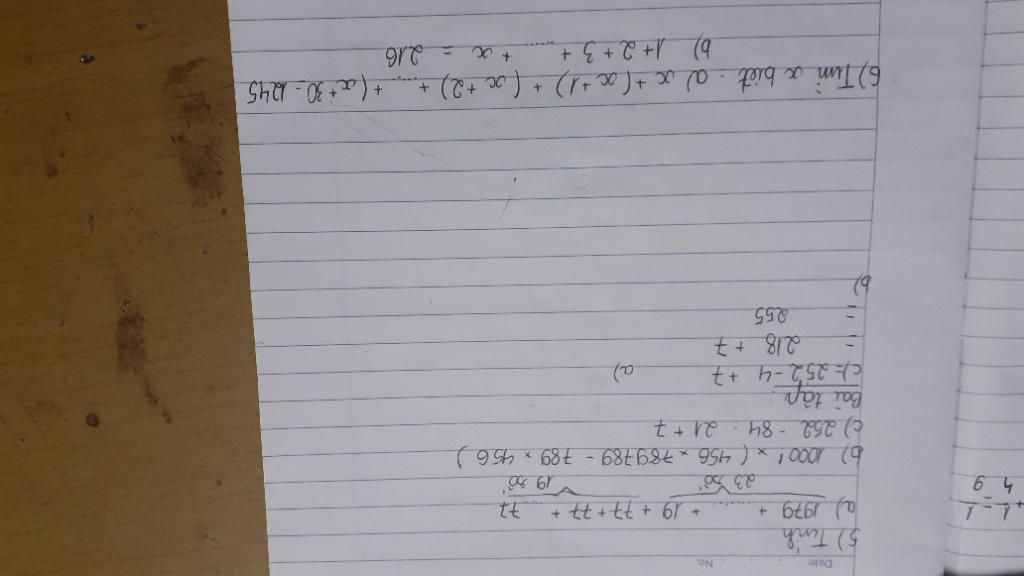 Date . . No.
5) Tính
a) 1979 + ........ + 19 + 77 + 77 + .... 77
23 số 19 số
b) 1000! × ( 456 × 789789 - 789 × 456 )
c) 252 - 84 : 21 + 7
Bài tập :
c) = 252 - 4 + 7 a)
= 218 + 7
= 255
b)
6) Tìm x biết : a) x + (x+1) + (x+2) + ...... + (x+30 = 1245
b) 1+2+3+ ........ + x = 216